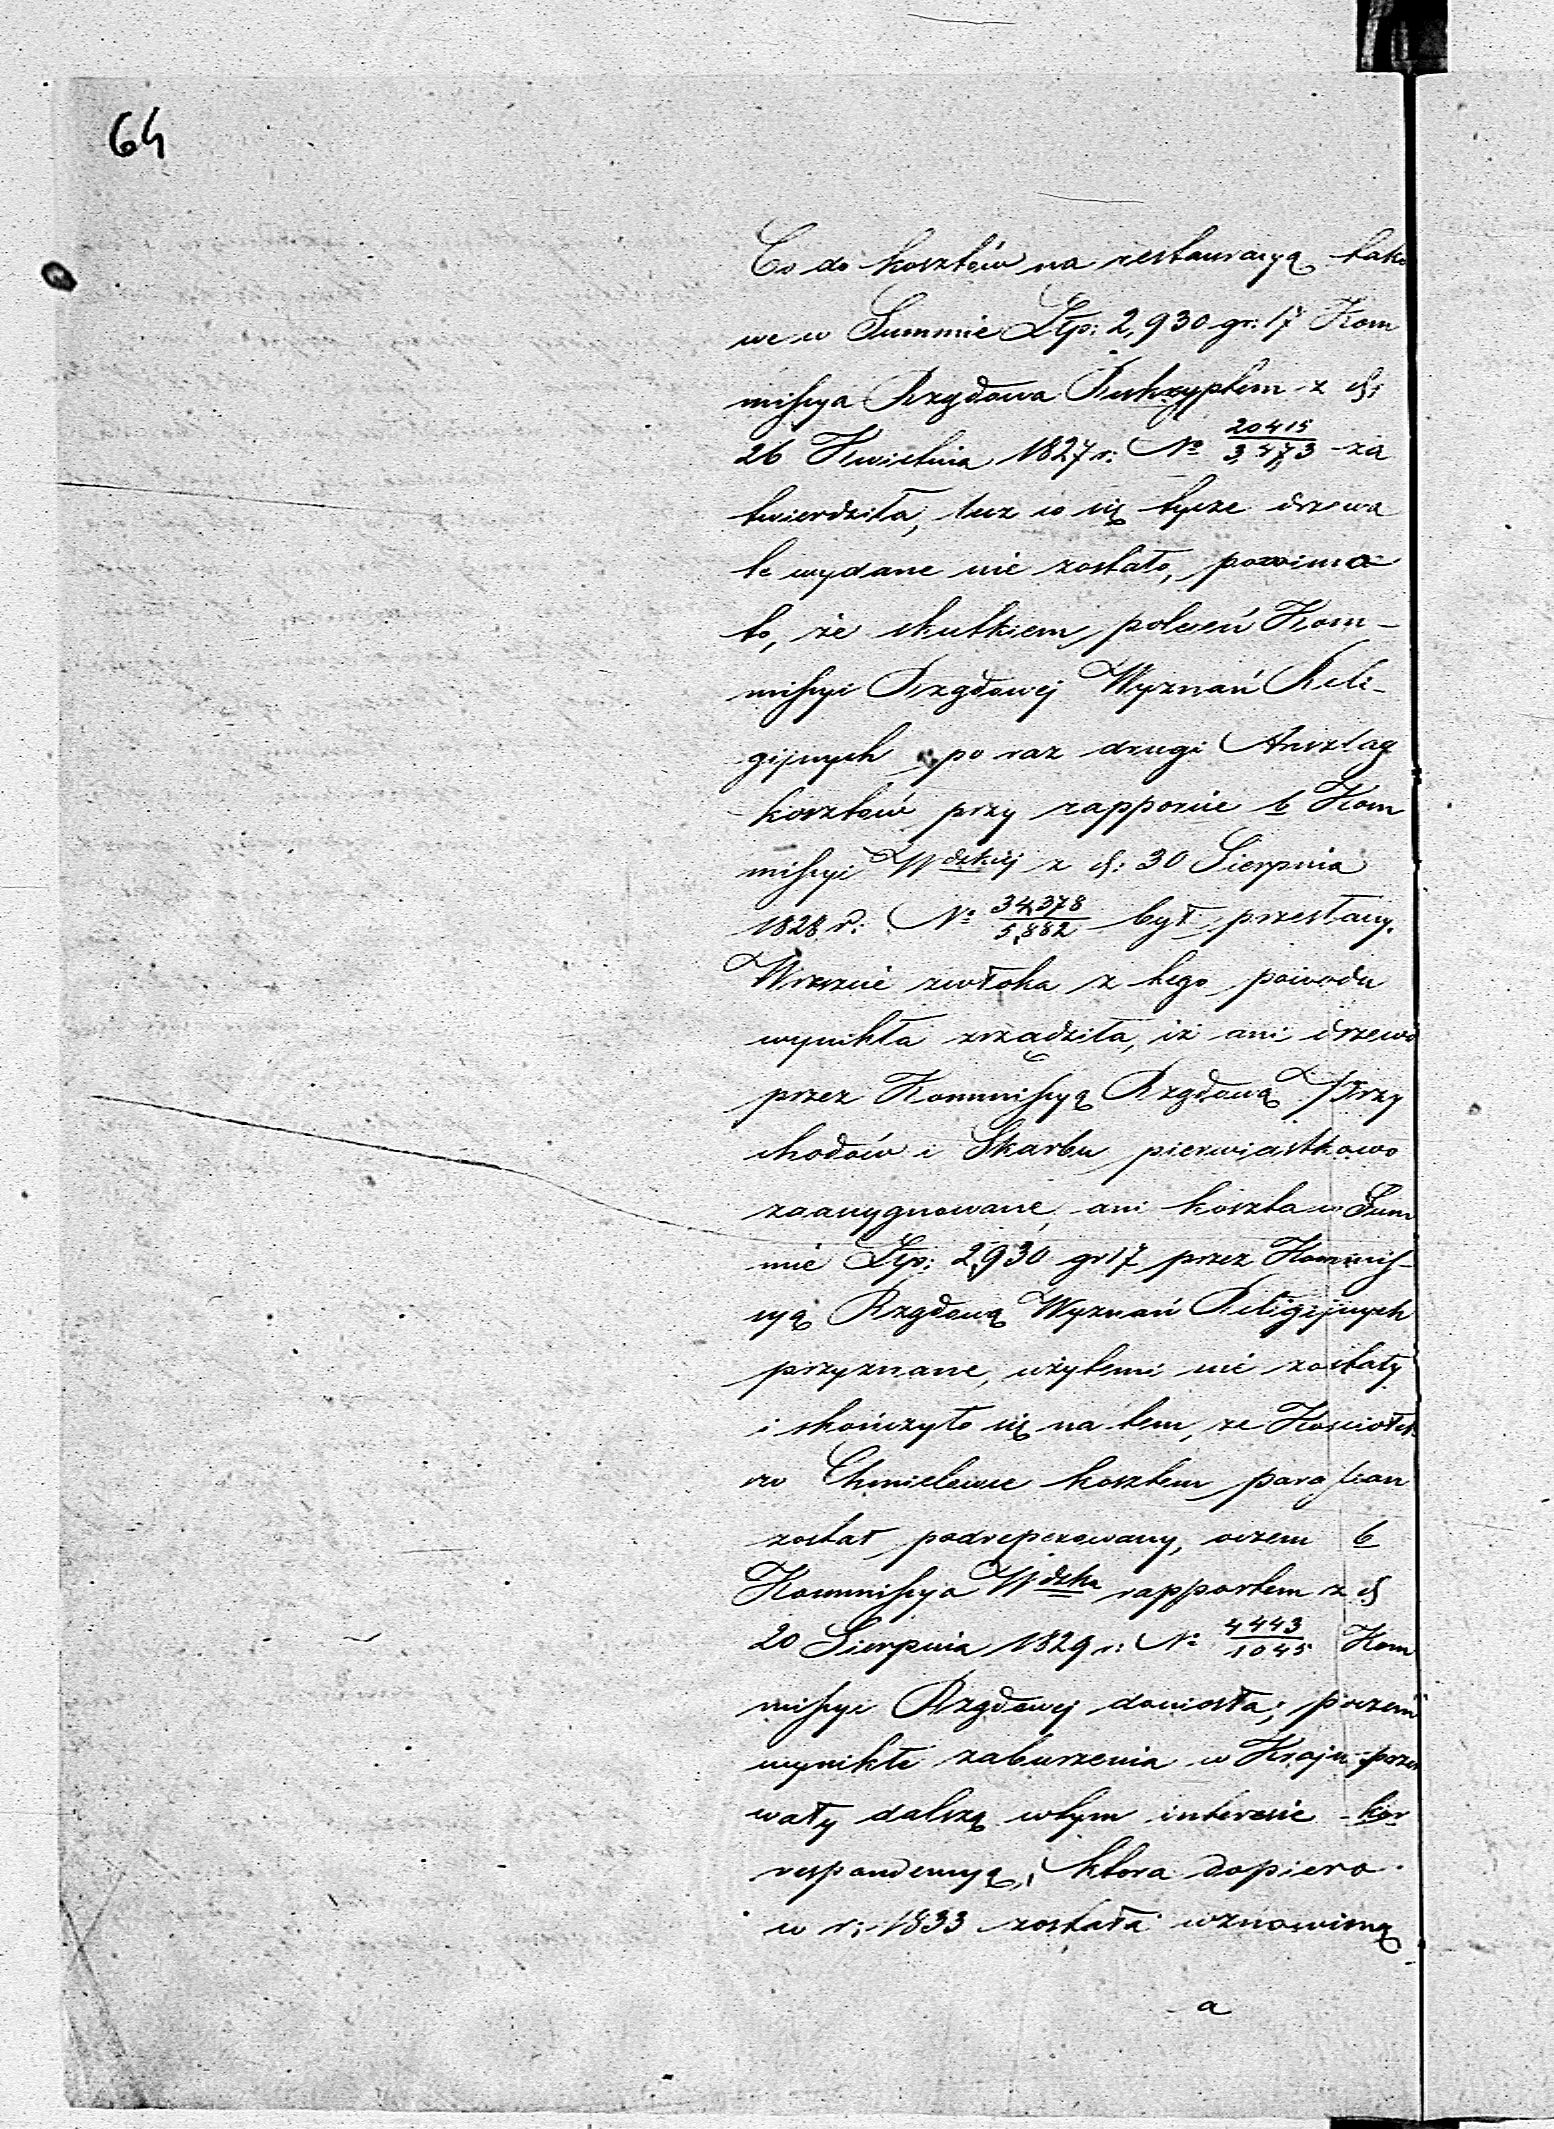 64
Co do kosztów na restauracyą tako
we w Summie Złp: 2,930 gr: 17 Kom
missya Rządowa Reskryptem z d:
26 Kwietnia 1827 r: No 20415/3,473 za
twierdziła, lecz co się tycze drzewa
te wydane nie zostało, pomimo
to, że skutkiem poleceń Kom-
missyi Rządowej Wyznań Reli-
gijnych po raz drugi Anszlag
kosztów przy rapporcie b Kom
missyi Wdzkiej z d: 30 Sierpnia
1828 r: No 34,378/5,882 był przesłany.
Wreszcie zwłoka z tego powodu
wynikła zrządziła, iż ani drzewo
przez Kommissyą Rządową Przy
chodów i Skarbu pierwiastkowo
zaasygnowane, ani koszta w Sum
mie Złp: 2,930 gr 17 przez Kommis-
syą Rządową Wyznań Religijnych
przyznane, użytemi nie zostały
i skończyło się na tem, że Kościołek
w Chmielewie kosztem parafian
został podreperowany, oczem b
Kommissya Wdzka rapportem z d
20 Sierpnia 1829 r: No 4443/1045 Kom
missyi Rządowej doniosła; poczem
wynikłe zaburzenia w Kraju przer
wały dalszą wtym interesie kor
respondencyą, która dopiero
w r: 1833 została wznowioną
a